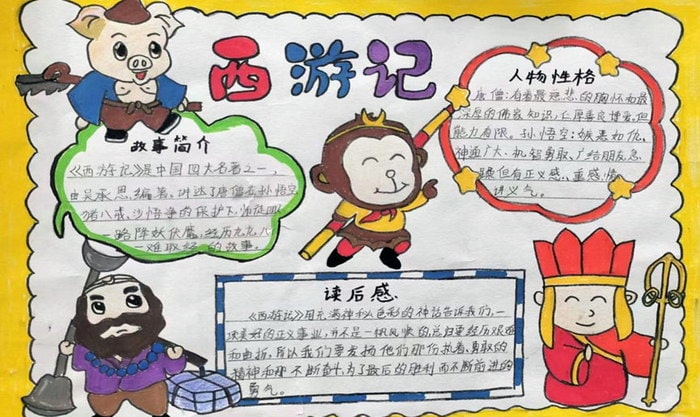 西游记
故事简介
《西游记》是中国四大名著之一,
由吴承恩编著。讲述了唐僧在孙悟空
猪八戒、沙悟净的保护下,师徒四人
一路降妖伏魔,经历九九八十
一难取经的故事。
人物性格
唐僧:有着最慈悲的胸怀和最
深厚的佛家知识,仁厚善良博爱,但
能力有限。孙悟空:嫉恶如仇,
神通广大、机智勇敢,广给朋友忌
但有正义感、重感情、
讲义气。
读后感
《西游记》用充满神秘色彩的神话告诉我们,一
次美好的正义事业,并不是一帆风顺的总归要经历艰难
和曲折,所以我们要发扬他们那份执着、勇敢的
精神和那不断奋斗,为了最后的胜利而不断前进的
勇气。